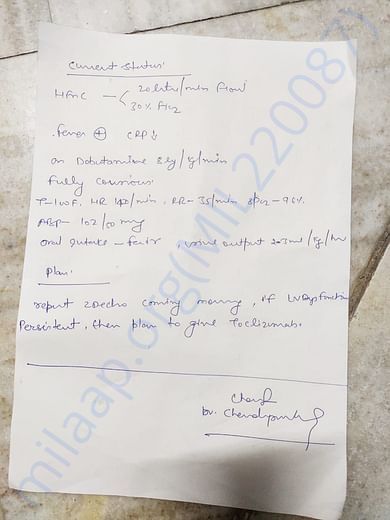 Current Status:
HFNC — 20 litre/min flow
30% FiO2
Fever ⊕ CRP ↓
on Dobutamine /kg/min
fully conscious
HR /min, RR - 35/min SPO2 - 96%
102/50 mmHg
Oral Intake - , urine output ml/kg/hr
Plan:
repeat 2D echo coming morning, if LV Dysfunction
Persistent, then plan to give Toclizumab.
Dr.
milaap.org(MIL220087)